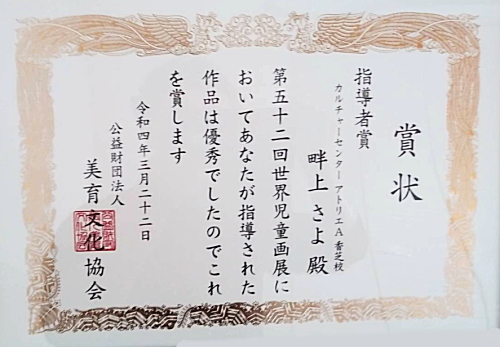 賞状
指導者賞
カルチャーセンター アトリエA 香芝校
畔上 さよ 殿
第五十二回世界児童画展に
おいてあなたが指導された
作品は優秀でしたのでこれ
を賞します
令和四年三月二十二日
公益財団法人
美育文化協会